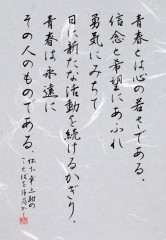 青春とは心の若さである。
信念と希望にあふれ
勇気にみちて
日に新たな活動を続けるかぎり、
青春は永遠に
その人のものである。
松下幸之助の